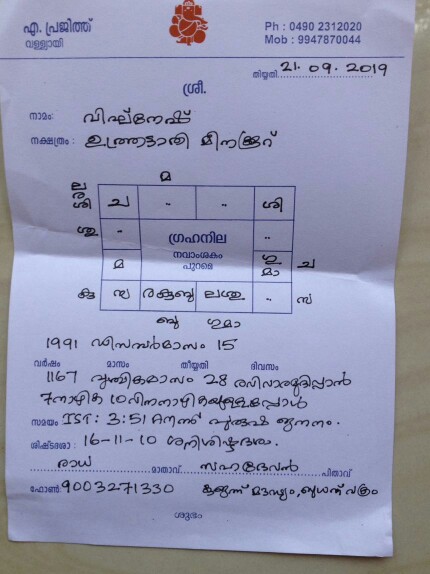 എ. പ്രജിത്ത്
വള്ള്യായി
Ph : 0490 2312020
Mob : 9947870044
തിയ്യതി 21.09.2019
ശ്രീ.
നാമം: വിഘ്നേഷ്
നക്ഷത്രം: ഉത്രട്ടാതി മീനക്കൂറ്
മ
ല ര ശി ച .. .. ശി
ശു .. ഗ്രഹനില
നവാംശകം
പുറമെ
മ ഗു മാ ച
കു സ്വ രകുബു ലശു .. സ്വ
ബു ഗുമാ
1991 ഡിസമ്പർമാസം 15
വർഷം മാസം തീയ്യതി ദിവസം
1167 വൃശ്ചികമാസം 28 രവിവാരമുദിപ്പാൻ
7നാഴിക 10വിനനാഴികയുള്ളപ്പോൾ
സമയം: IST: 3:51 AM ന് പുരുഷ ജനനം.
ശിഷ്ടദശാ: 16-11-10 ശനിശിഷ്ടദശ.
രാധ മാതാവ് സഹദേവൻ പിതാവ്
ഫോൺ: 9003271330 കുജന് മൗഢ്യം, ബുധന് വക്രം
ശുഭം